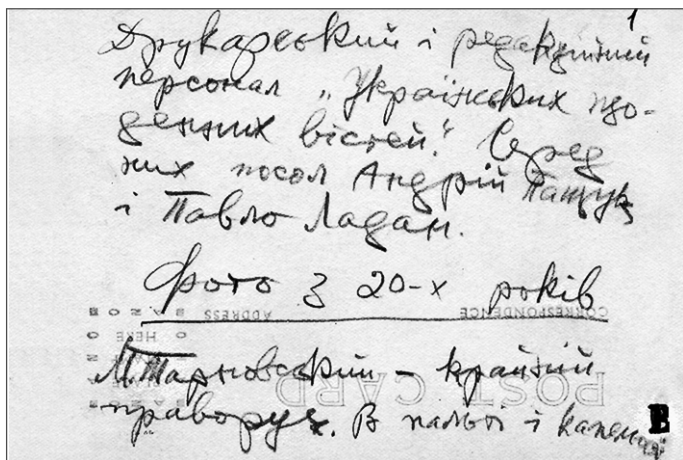 1
Друкарський і редакційний
персонал „Українських що-
денних вістей." Серед
них посол Андрій Пащук
і Павло Ладан.
Фото з 20-х років
CORRESPONDENCE ADDRESS
HERE
POST CARD
М. Тарновський – крайній
праворуч. В пальті і капелюсі
В